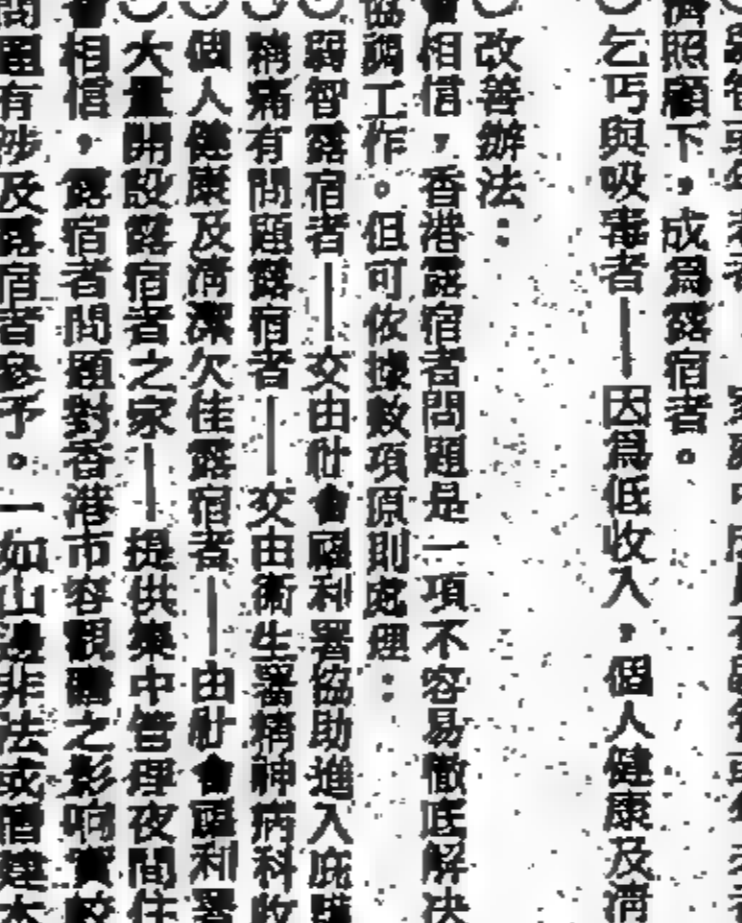 濟照顧下，成爲露宿者。
乞丐與吸毒者——因爲低收入，個人健康及清
改善辦法：
相信，香港露宿者問題是一項不容易徹底解决
協調工作。但可依據數項原則處理：
弱智露宿者——交由社會福利署協助進入庇護
精神有問題露宿者——交由衞生署精神病科收
個人健康及清潔欠佳露宿者——由社會福利署
大量開設露宿者之家——提供集中管理夜間住
相信，露宿者問題對香港市容觀瞻之影响實較
問題有涉及露宿者參予。一如山邊非法或僭建木